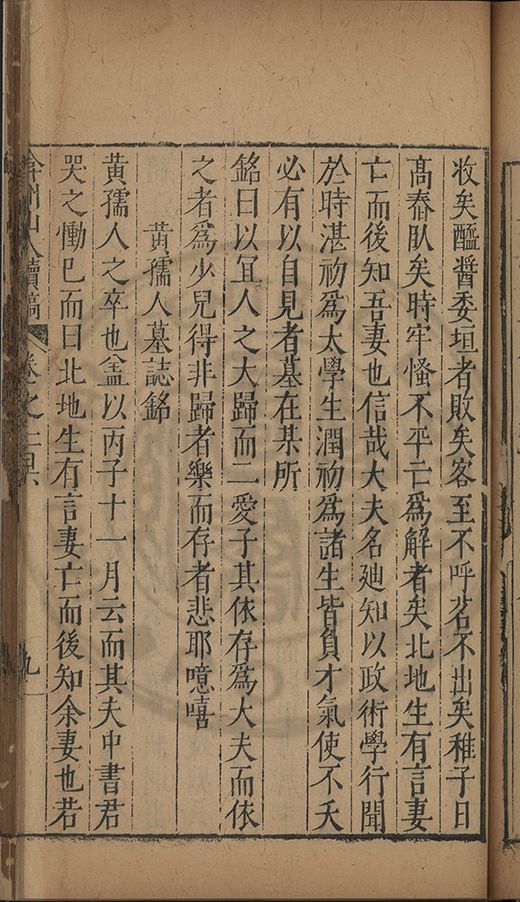 收矣醯醬委垣者敗矣客至不呼茗不出矣稚子日
髙舂臥矣時牢慅不平亡爲解者矣北地生有言妻
亡而後知吾妻也信哉大夫名廸知以政術學行聞
於時湛初爲太學生潤初爲諸生皆負才氣使不夭
必有以自見者墓在某所
銘曰以冝人之大歸而二愛子其依存爲大夫而依
之者爲少兒得非歸者樂而存者悲耶噫嘻
黃孺人墓誌銘
黃孺人之卒也盖以丙子十一月云而其夫中書君
哭之慟已而曰北地生有言妻亡而後知余妻也若
弇州山人續稿 卷之 九